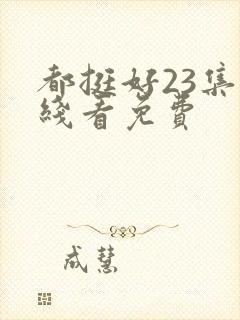 都挺好23集
綫看免費
成慧